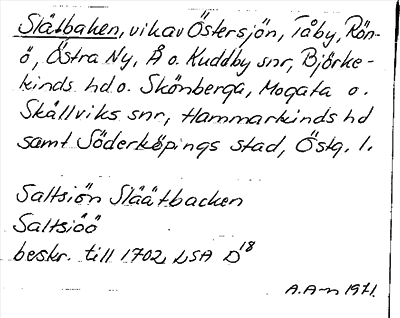 Slätbaken, vik av Östersjön, Tåby, Rön-
ö, Östra Ny, Å o. Kuddby snr, Björke-
kinds hd o. Skönberga, Mogata o.
Skällviks snr, Hammarkinds hd
samt Söderköpings stad, Östg. l.
Saltsiön Släätbacken
Saltsiöö
beskr. till 1702, LSA D18
A.A-n 1971.